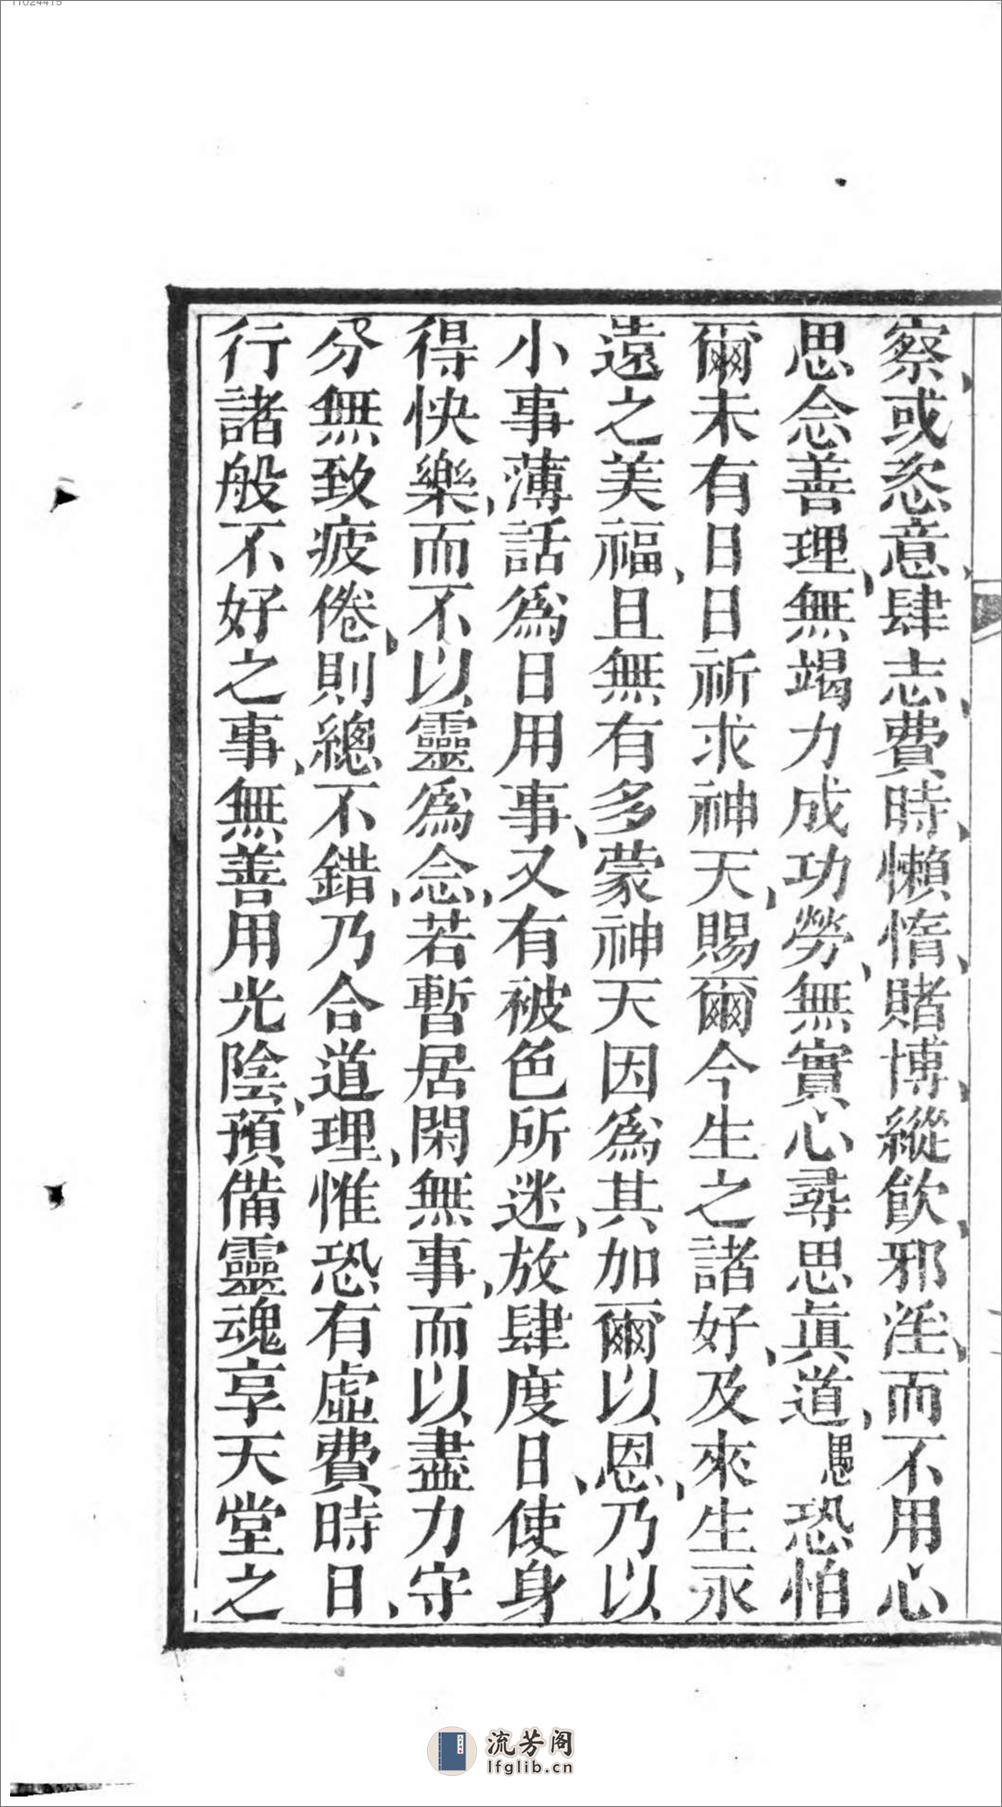 察、或恣意肆志、費時、懶惰、賭博、縱飲、邪淫、而不用心
思念善理、無竭力成功勞、無實心尋思眞道、愚恐怕
爾未有日日祈求神天、賜爾今生之諸好、及來生永
遠之美福、且無有多蒙神天因爲其加爾以恩、乃以
小事薄話爲日用事、又有被色所迷、放肆度日、使身
得快樂、而不以靈爲念、若暫居閑無事、而以盡力守
分、無致疲倦、則總不錯、乃合道理、惟恐有虛費時日、
行諸般不好之事、無善用光陰、預備靈魂享天堂之
流芳阁
lfglib.cn